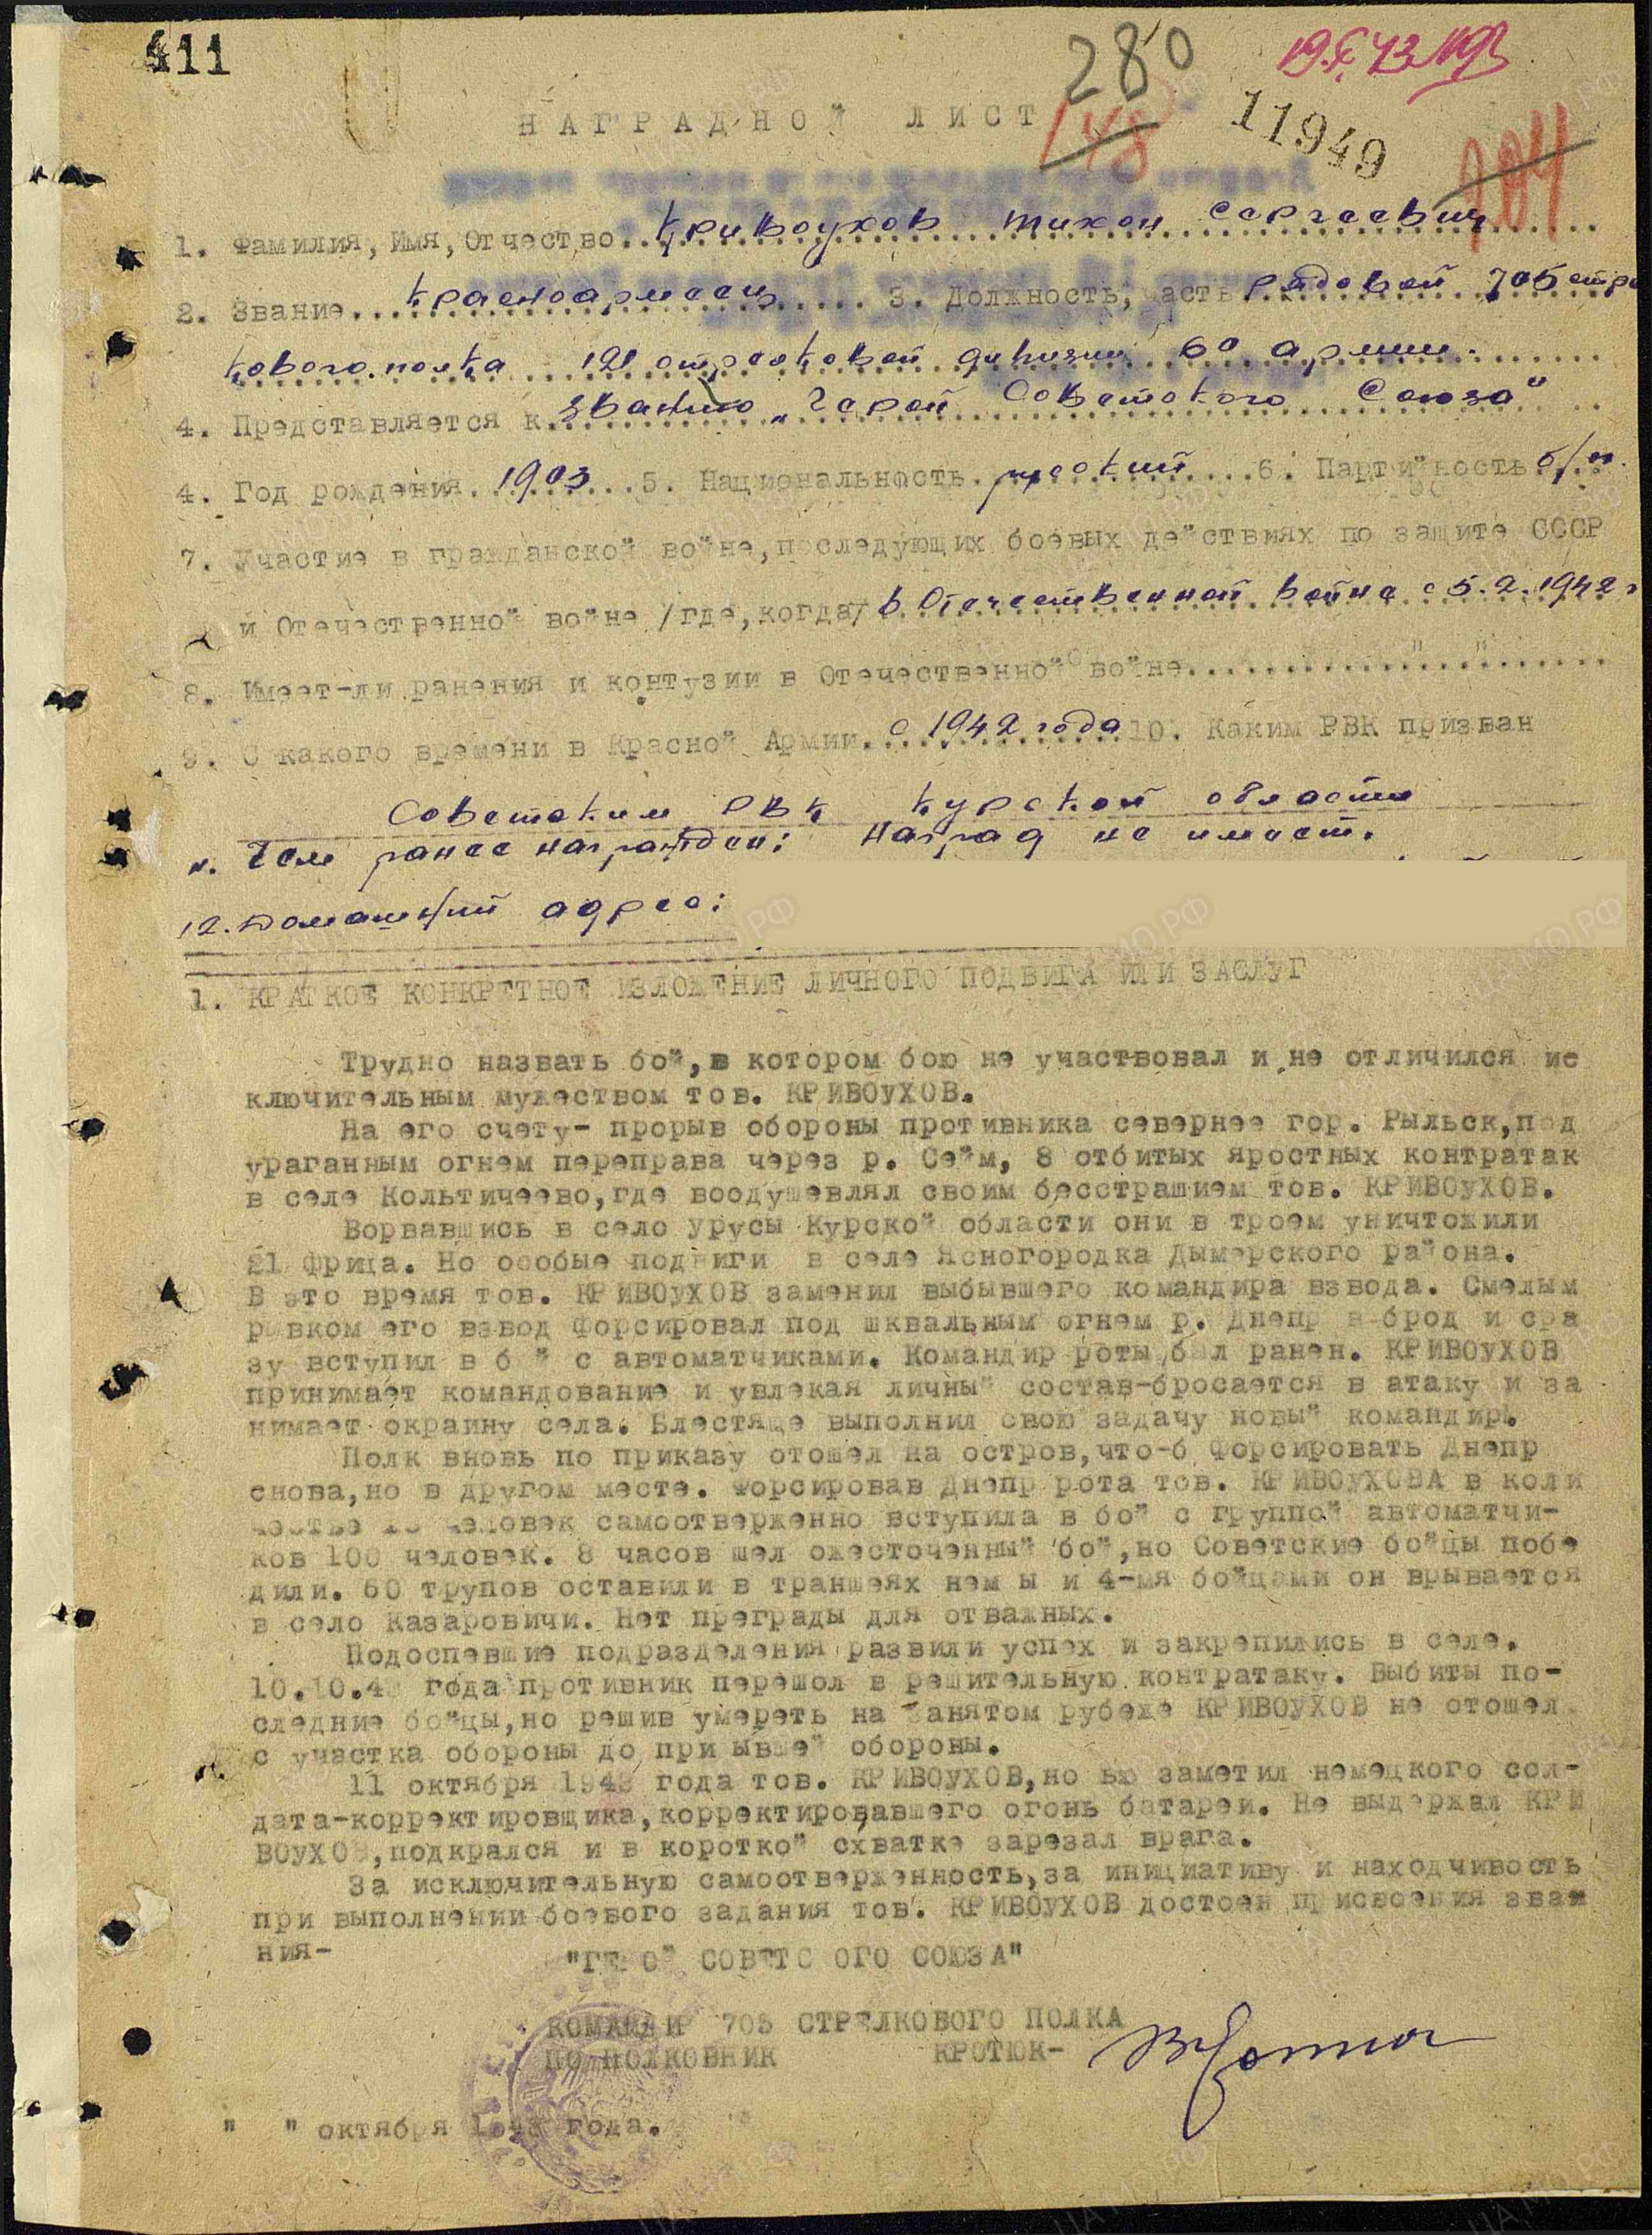 411
280
19.X.43
148
11949
204
НАГРАДНОЙ ЛИСТ
1. Фамилия, Имя, Отчество Кривоухов Тихон Сергеевич
2. Звание Красноармеец 3. Должность, часть рядовой 705 стрел
кового полка 121 стрелковой дивизии 60 армии.
4. Представляется к званию „Герой Советского Союза"
4. Год рождения 1903 5. Национальность русский 6. Партийность б/п.
7. Участие в гражданской войне, последующих боевых действиях по защите СССР
и Отечественной войне /где, когда/ в Отечественной войне с 5.2.1942 г
8. Имеет-ли ранения и контузии в Отечественной войне " "
9. С какого времени в Красной Армии с 1942 года 10. Каким РВК призван
Советским РВК Курской области
11. Чем ранее награжден: Наград не имеет.
12. Домашний адрес:
1. КРАТКОЕ КОНКРЕТНОЕ ИЗЛОЖЕНИЕ ЛИЧНОГО ПОДВИГА ИЛИ ЗАСЛУГ
Трудно назвать бой, в котором бою не участвовал и не отличился ис
ключительным мужеством тов. КРИВОУХОВ.
На его счету- прорыв обороны противника севернее гор. Рыльск, под
ураганным огнем переправа через р. Сейм, 8 отбитых яростных контратак
в селе Кольтичеево, где воодушевлял своим бесстрашием тов. КРИВОУХОВ.
Ворвавшись в село Урусы Курской области они в троем уничтожили
21 фрица. Но особые подвиги в селе Ясногородка Дымерского района.
В это время тов. КРИВОУХОВ заменил выбывшего командира взвода. Смелым
рывком его взвод форсировал под шквальным огнем р. Днепр в-брод и сра
зу вступил в бой с автоматчиками. Командир роты был ранен. КРИВОУХОВ
принимает командование и увлекая личный состав-бросается в атаку и за
нимает окраину села. Блестяще выполнил свою задачу новый командир.
Полк вновь по приказу отошел на остров, что-б форсировать Днепр
снова, но в другом месте. Форсировав Днепр рота тов. КРИВОУХОВА в коли
честве человек самоотверженно вступила в бой с группой автоматчи-
ков 100 человек. 8 часов шел ожесточенный бой, но Советские бойцы побе
дили. 60 трупов оставили в траншеях нем ы и 4-мя бойцами он врывается
в село Казаровичи. Нет преграды для отважных.
Подоспевшие подразделения развили успех и закрепились в селе.
10.10.43 года противник перешол в решительную контратаку. Выбиты по-
следние бойцы, но решив умереть на занятом рубеже КРИВОУХОВ не отошел
с участка обороны до при ывшей обороны.
11 октября 1943 года тов. КРИВОУХОВ, но ью заметил немецкого сол-
дата-корректировщика, корректировавшего огонь батареи. Не выдержал КРИ
ВОУХОВ, подкрался и в короткой схватке зарезал врага.
За исключительную самоотверженность, за инициативу и находчивость
при выполнении боевого задания тов. КРИВОУХОВ достоен присвоения зва
ния-
"ГЕРОЙ СОВЕТС ОГО СОЮЗА"
КОМАНДИР 705 СТРЕЛКОВОГО ПОЛКА
ПОДПОЛКОВНИК КРОТЮК-
" " октября 1943 года.